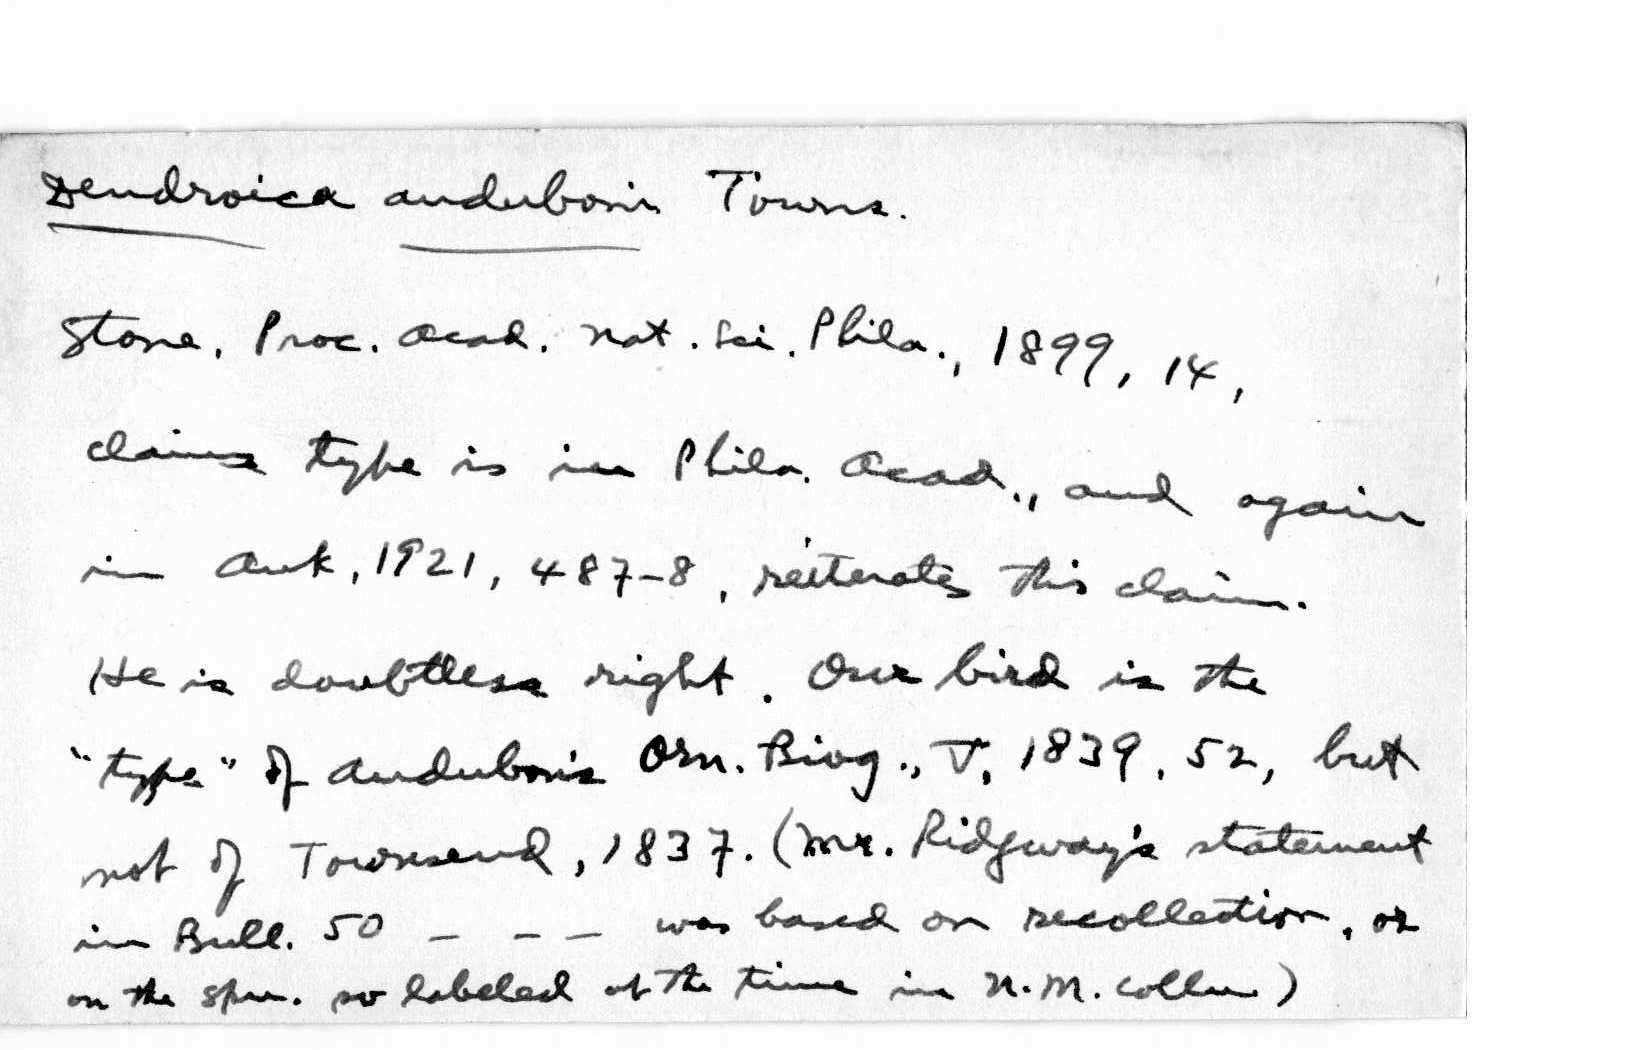 Dendroica auduboni Towns.
Stone, Proc. Acad. Nat. Sci. Phila., 1899, 14,
claims type is in Phila. Acad., and again
in Auk, 1921, 487-8, reiterates this claim.
He is doubtless right. Our bird is the
"type" of Audubon's Orn. Biog., V, 1839, 52, but
not of Townsend, 1837. (Mr. Ridgway's statement
in Bull. 50 - - - was based on recollection, or
on the spm. so labeled at the time in N.M. Colln.)